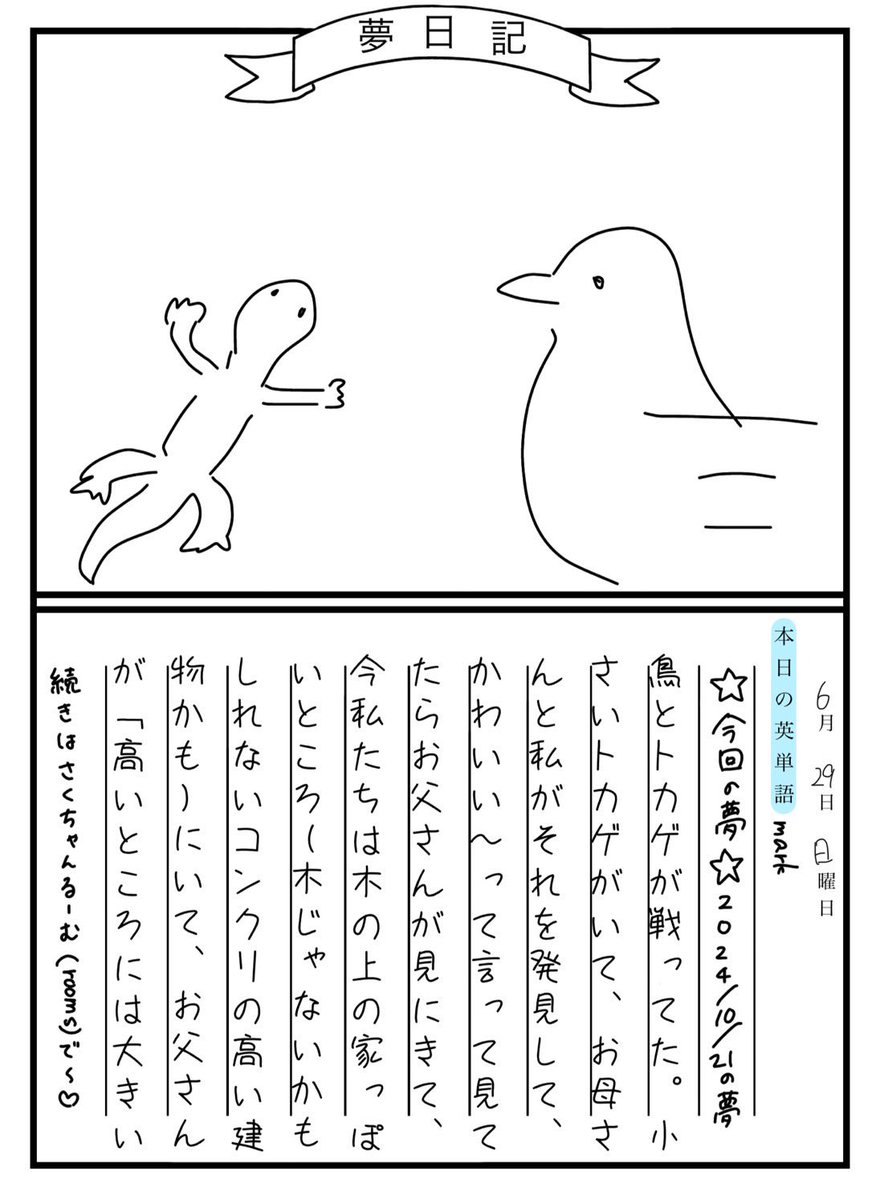 夢日記
6月29日日曜日
本日の英単語 mark
☆今回の夢☆2024/10/21の夢
鳥とトカゲが戦ってた。小
さいトカゲがいて、お母さ
んと私がそれを発見して、
かわいい〜って言って見て
たらお父さんが見にきて、
今私たちは木の上の家っぽ
いところ(木じゃないかも
しれないコンクリの高い建
物かも)にいて、お父さん
が「高いところには大きい
続きはさくちゃんるーむ(rooms)で〜♡